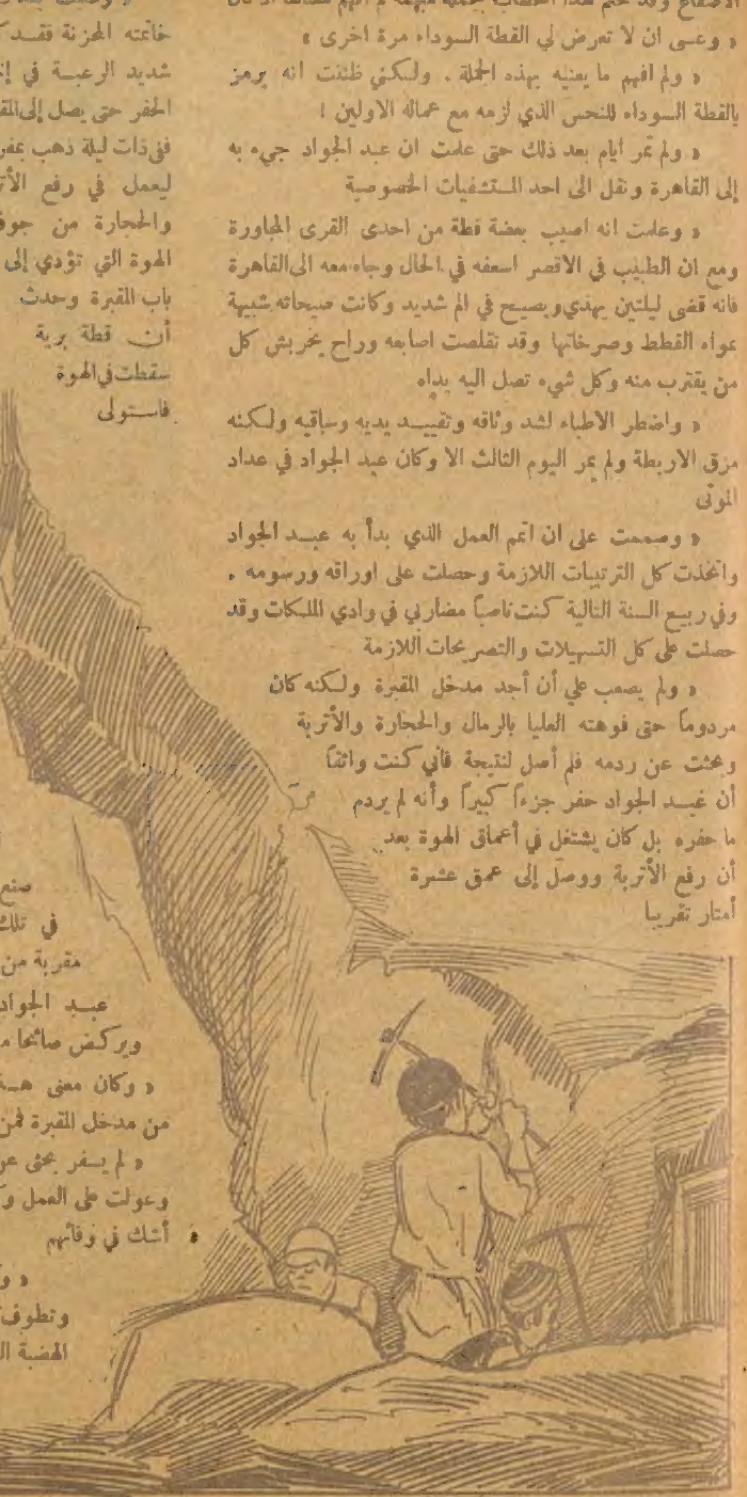 « وعسى ان لا تعرض لي القطة السوداء مرة اخرى »
« ولم افهم ما يعنيه بهذه الجملة . ولكني ظننت انه يرمز
بالقطة السوداء للنحس الذي لزمه مع عماله الاولين !
« ولم تمر ايام بعد ذلك حتى علمت ان عبد الجواد جيء به
إلى القاهرة ونقل الى احد المستشفيات الخصوصية
« وعلمت انه اصيب بعضة قطة من احدى القرى المجاورة
ومع ان الطبيب في الاقصر اسعفه في الحال وجاء معه الى القاهرة
فانه قضى ليلتين يهذي ويصيح في الم شديد وكانت صيحاته شبيهة
بمواء القطط وصرخاتها وقد تقلصت اصابعه وراح يخربش كل
من يقترب منه وكل شيء تصل اليه يداه
« واضطر الاطباء لشد وثاقه وتقييد يديه وساقيه ولكنه
مزق الاربطة ولم يمر اليوم الثالث الا وكان عبد الجواد في عداد
الموتى
« وصممت على ان اتمم العمل الذي بدأ به عبد الجواد
واتخذت كل الترتيبات اللازمة وحصلت على اوراقه ورسومه .
وفي ربيع السنة التالية كنت ناصباً مضاربي في وادي الملكات وقد
حصلت على كل التسهيلات والتصريحات اللازمة
« ولم يصعب علي أن أجد مدخل المقبرة ولكنه كان
مردوماً حتى فوهته العليا بالرمال والحجارة والأتربة
وبحثت عن ردمه فلم أصل لنتيجة فاني كنت واثقاً
أن عبد الجواد حفر جزءاً كبيراً وأنه لم يردم
ما حفره بل كان يشتغل في أعماق الهوة بعد
أن رفع الأتربة ووصل إلى عمق عشرة
أمتار تقريبا
خاتمته المحزنة فقد
شديد الرعبة في
الحفر حتى يصل إلى
ففي ذات ليلة ذهب
ليعمل في رفع
والحجارة من
الهوة التي تؤدي إلى
باب المقبرة وحدث
أن قطة برية
سقطت في الهوة
فاستولى
صنع
في تلك
مقربة من
عبد الجواد
ويركض صائحا
« وكان معنى
من مدخل المقبرة فمن
« لم يسفر بحثي
وعولت على العمل
أشك في وفاتهم
وتطوف
الهضبة